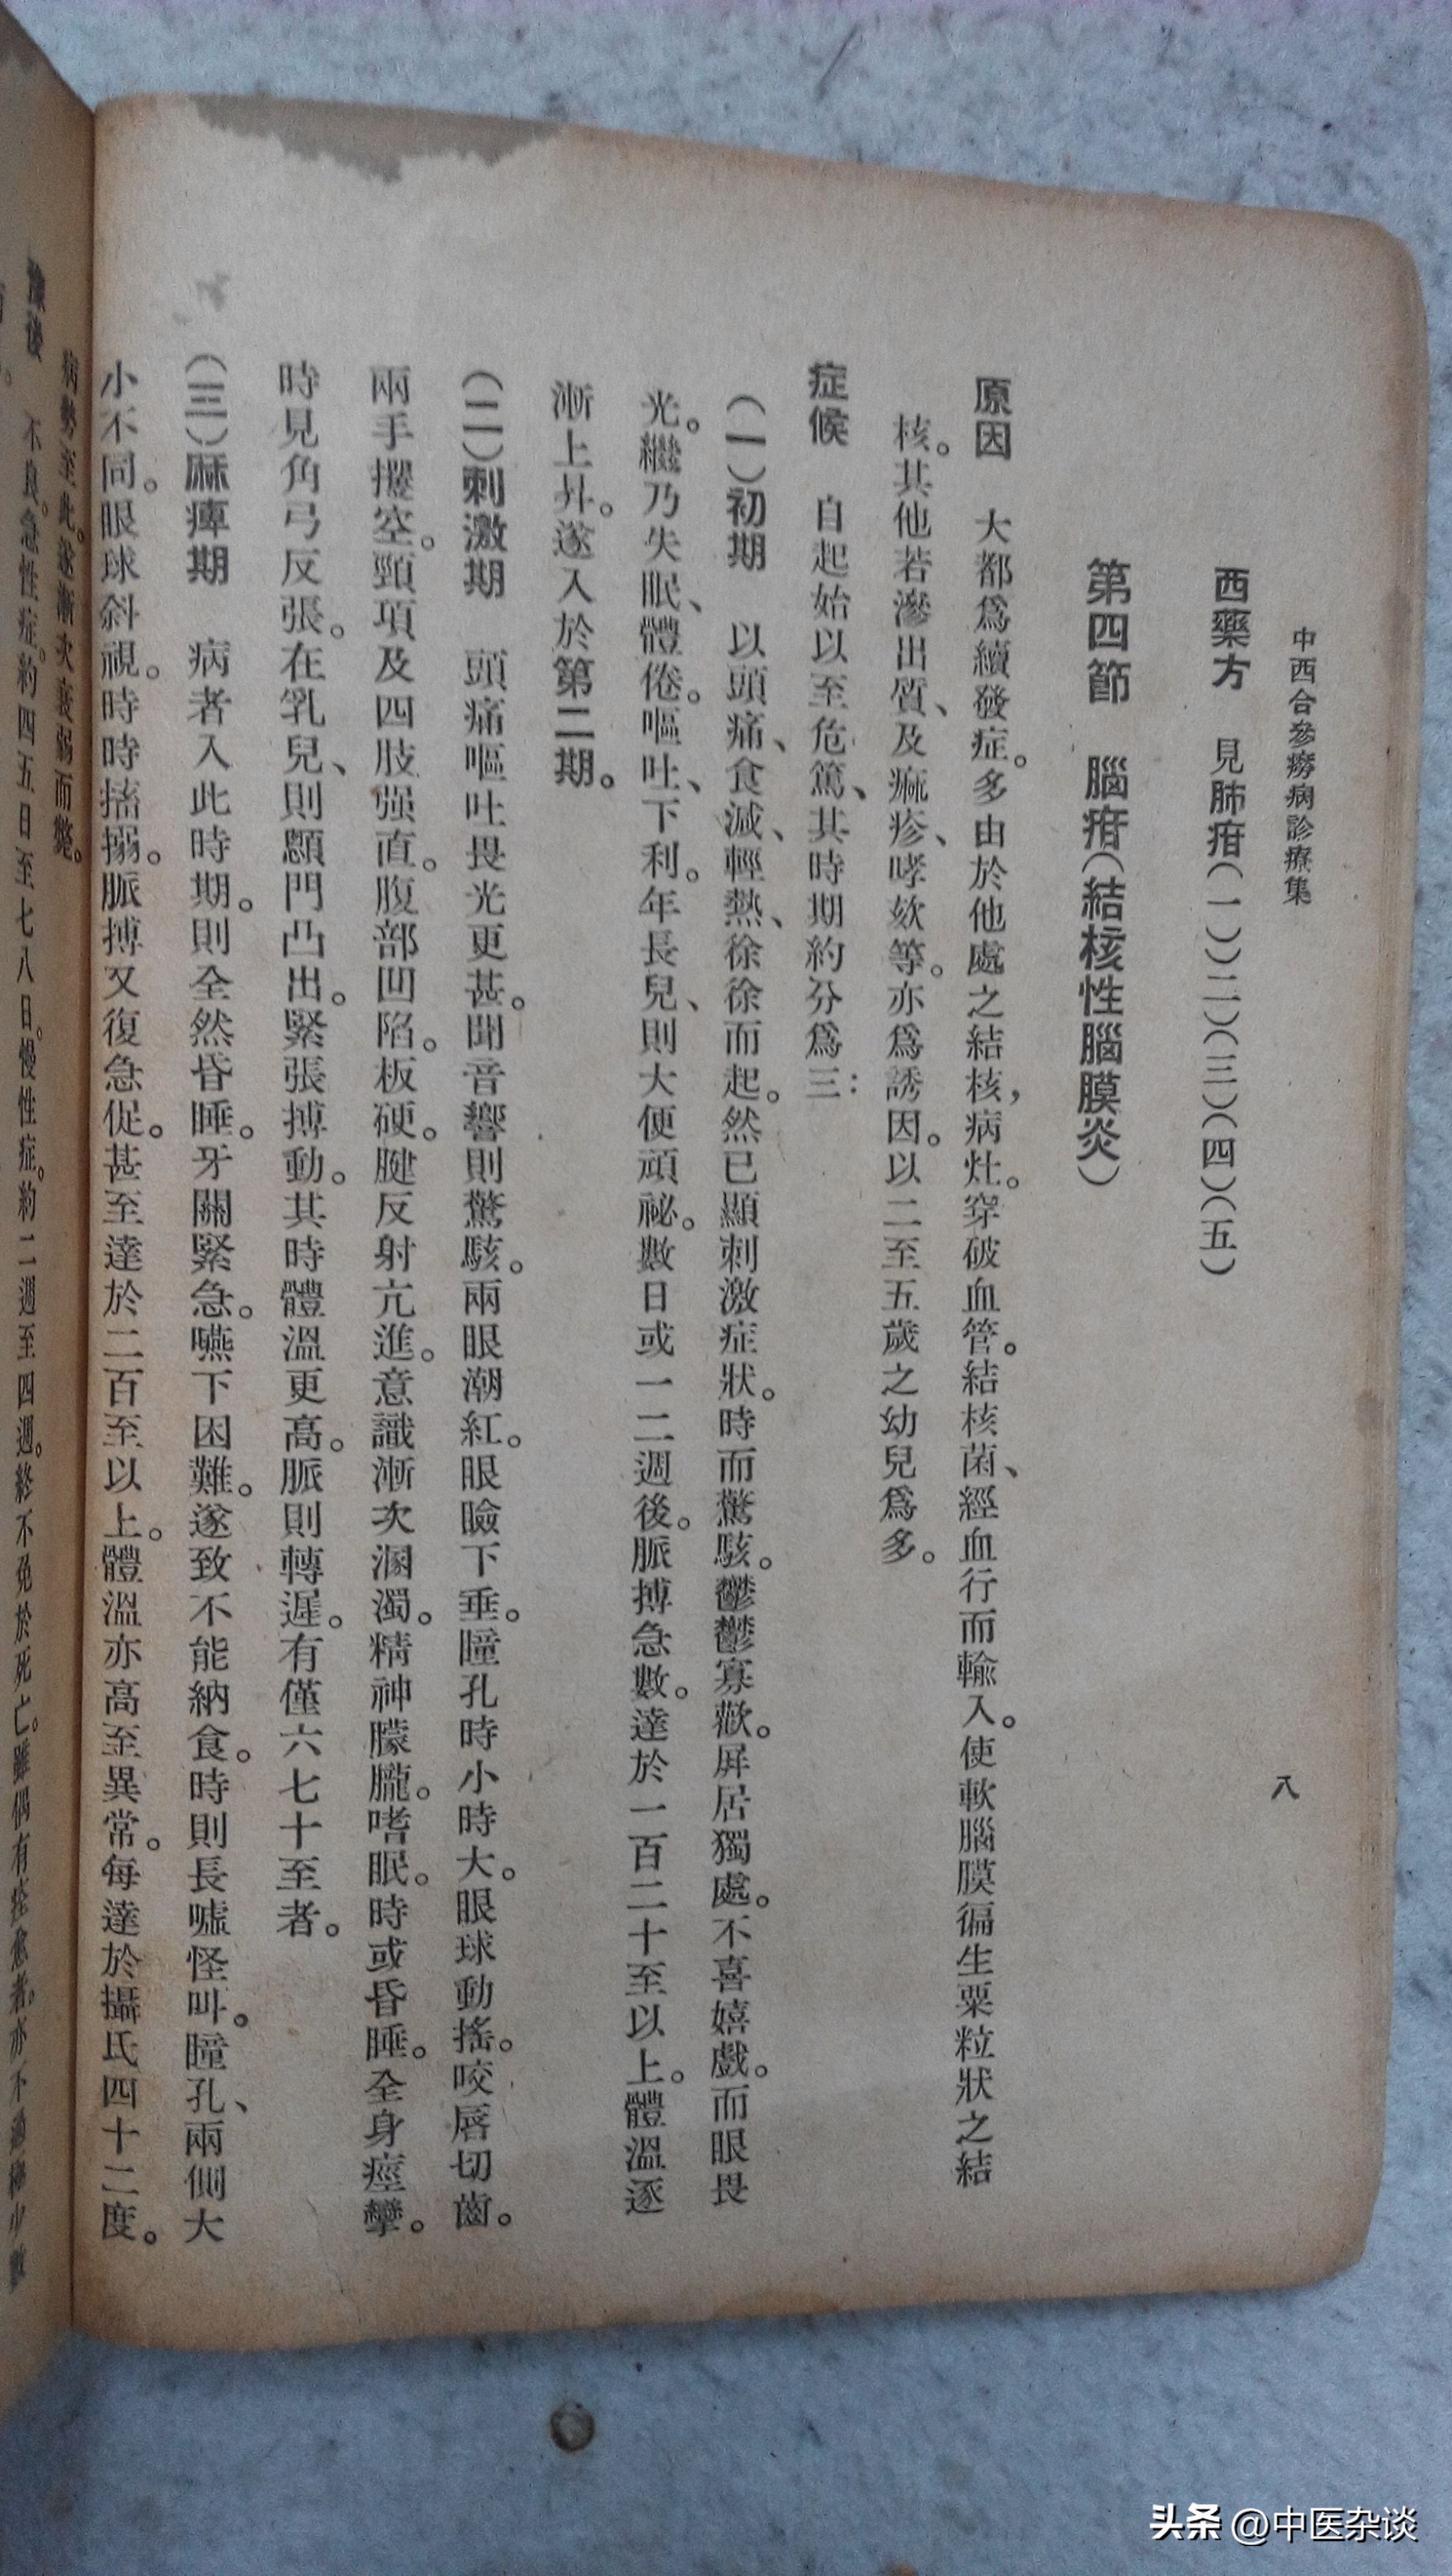 中西合參癆病診療集
八
西藥方　見肺疳(一)(二)(三)(四)(五)
第四節　腦疳(結核性腦膜炎)
原因　大都爲續發症。多由於他處之結核,病灶。穿破血管。結核菌、經血行而輸入。使軟腦膜徧生粟粒狀之結
核。其他若滲出質、及痲疹、哮欬等。亦爲誘因。以二至五歲之幼兒爲多。
症候　自起始以至危篤、其時期約分爲三:
(一)初期　以頭痛、食減、輕熱、徐徐而起。然已顯刺激症狀。時而驚駭。鬱鬱寡歡。屏居獨處。不喜嬉戲。而眼畏
光。繼乃失眠、體倦。嘔吐、下利。年長兒、則大便頑祕。數日或一二週後。脈搏急數。達於一百二十至以上。體溫逐
漸上昇。遂入於第二期。
(二)刺激期　頭痛嘔吐畏光更甚。聞音響則驚駭。兩眼潮紅。眼瞼下垂。瞳孔時小時大。眼球動搖。咬唇切齒。
兩手攫空。頸項及四肢强直。腹部凹陷。板硬。腱反射亢進。意識漸次溷濁。精神朦朧。嗜眠。時或昏睡。全身痙攣。
時見角弓反張。在乳兒、則顖門凸出。緊張搏動。其時體溫更高。脈則轉遲。有僅六七十至者。
(三)麻痺期　病者入此時期。則全然昏睡。牙關緊急。嚥下困難。遂致不能納食。時則長嘘怪叫。瞳孔、兩側大
小不同。眼球斜視。時時搐搦。脈搏又復急促。甚至達於二百至以上。體溫亦高至異常。每達於攝氏四十二度。
病勢至此。遂漸次衰弱而斃。
豫後　不良。急性症。約四五日至七八日。慢性症。約二週至四週。終不免於死亡。雖偶有痊愈者。亦不過極少數
头条 @中医杂谈